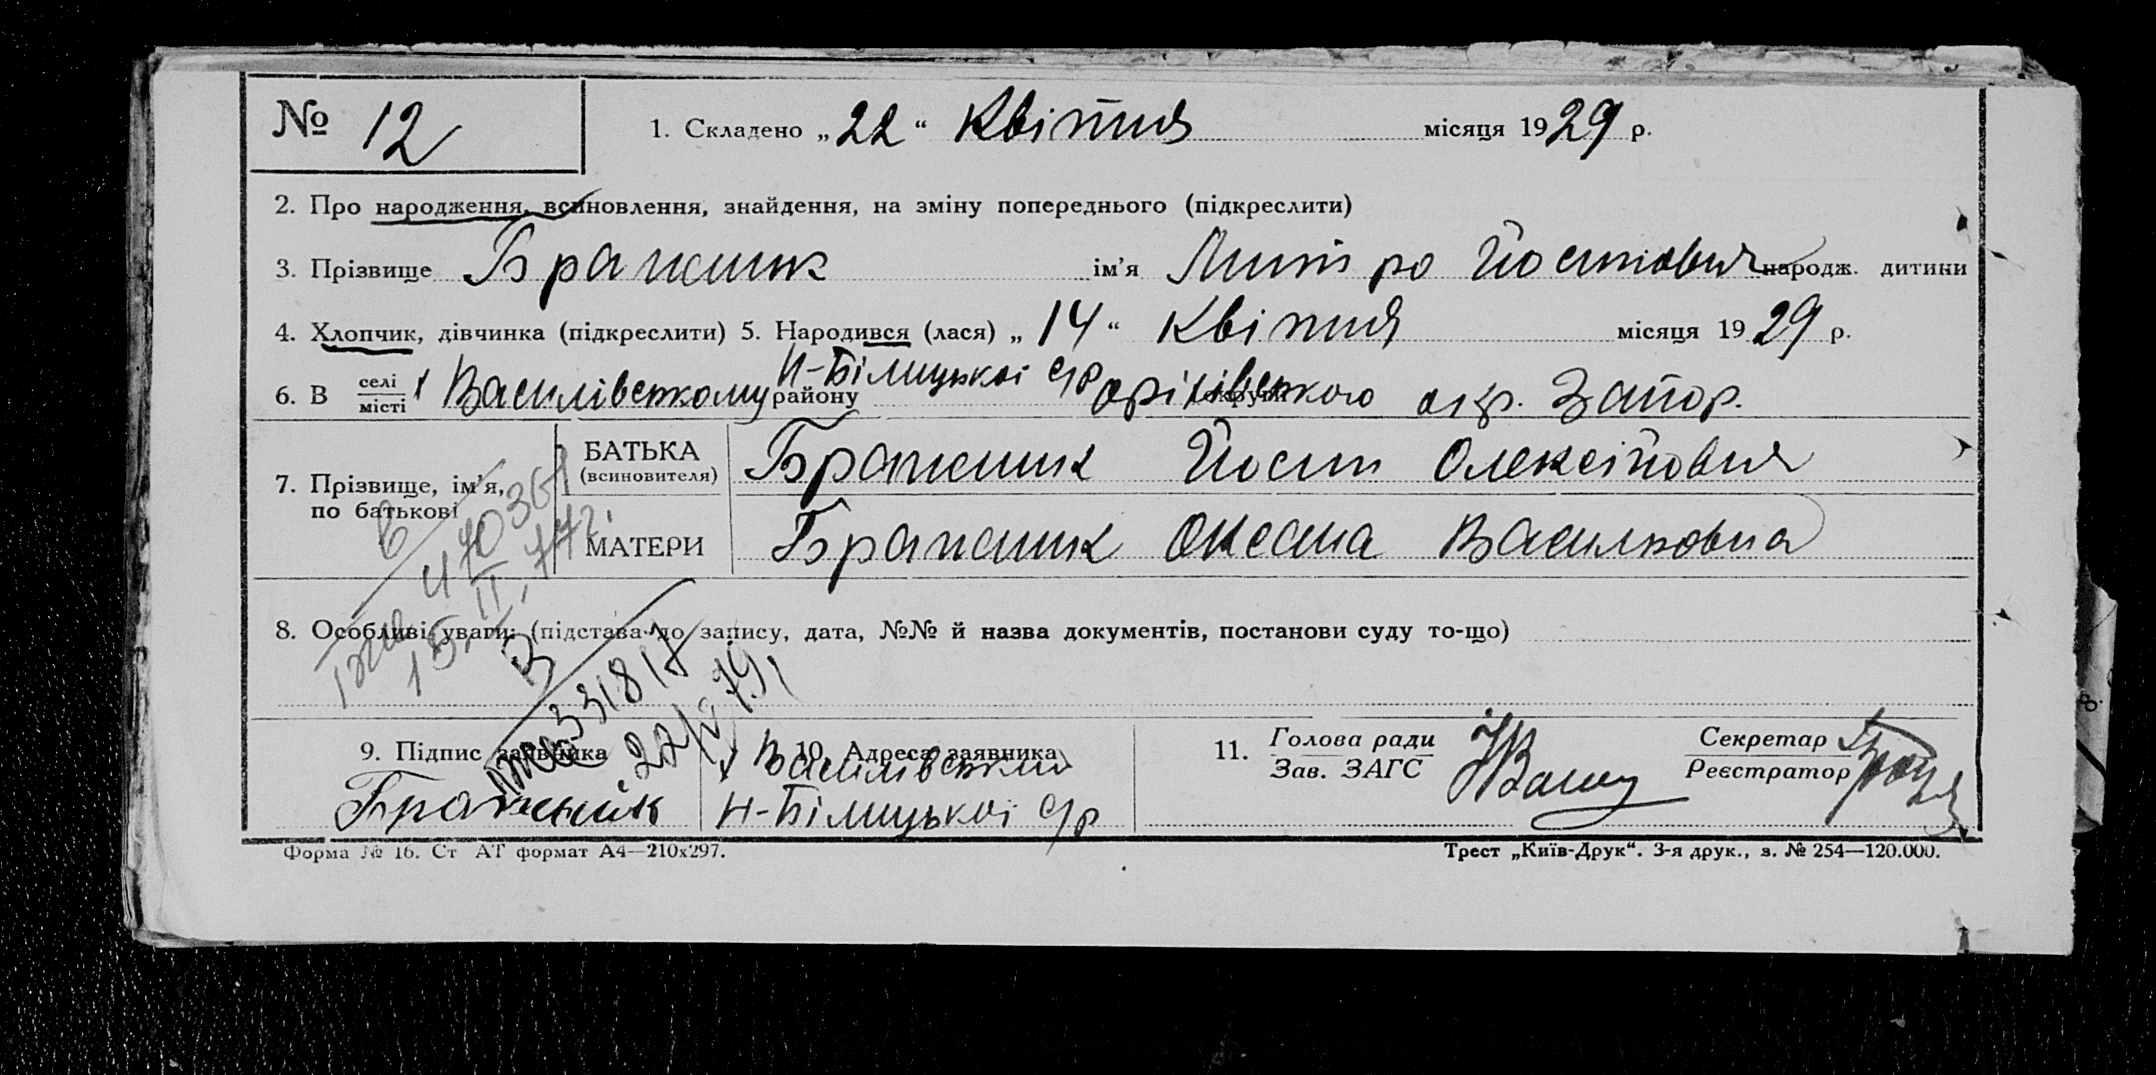 № 12
1. Складено „22“ Квітня місяця 1929 р.
2. Про народження, всиновлення, знайдення, на зміну попереднього (підкреслити)
3. Прізвище Бражник ім'я Митро Йостович народж. дитини
4. Хлопчик, дівчинка (підкреслити) 5. Народився (лася) „14“ Квітня місяця 1929 р.
6. В селі місті х Василівському району Н-Білицької с/р округи Оріхівського окр. Запор.
7. Прізвище, ім'я, по батькові
БАТЬКА (всиновителя) Бражник Йост Олексійович
МАТЕРИ Бражник Оксана Василковна
8. Особливі уваги: (підстава до запису, дата, №№ й назва документів, постанови суду то-що)
15 II, 77 г.
331817
9. Підпис заявника
Бражник
10. Адреса заявника
х Василівський
Н-Білицької с/р
11. Голова ради
Зав. ЗАГС
Секретар
Реєстратор
Форма № 16. Ст АТ формат А4—210х297.
Трест „Київ-Друк“. 3-я друк., з. № 254—120.000.